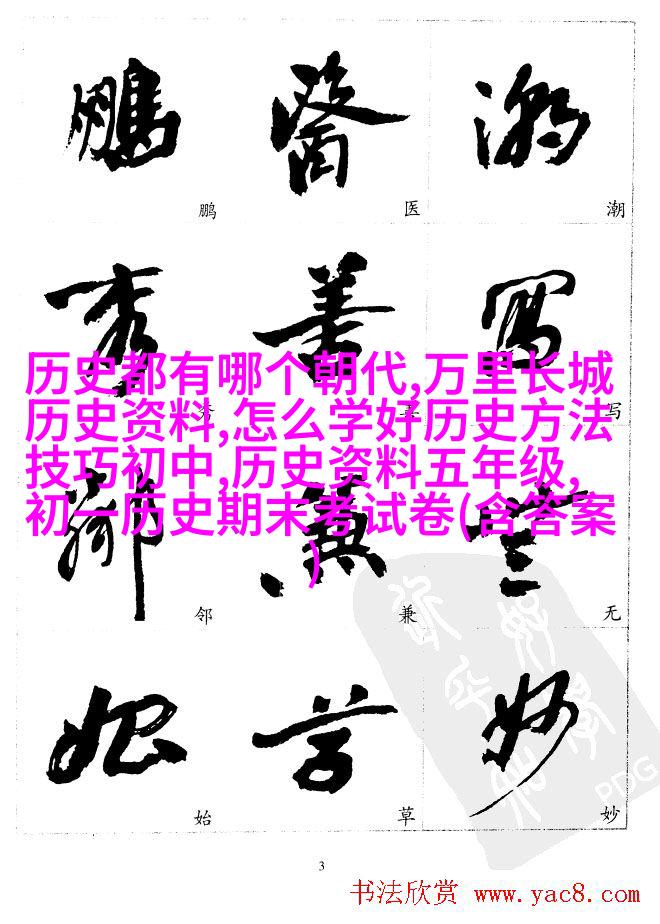 鹏 医 潮
秀 善 写
历史都有哪个朝代,万里长城
历史资料,怎么学好历史方法
技巧初中,历史资料五年级,
初一历史期末考试卷(含答案
)
邻 兼 无
始 草 妙
3
PDG
书法欣赏 www.yac8.com